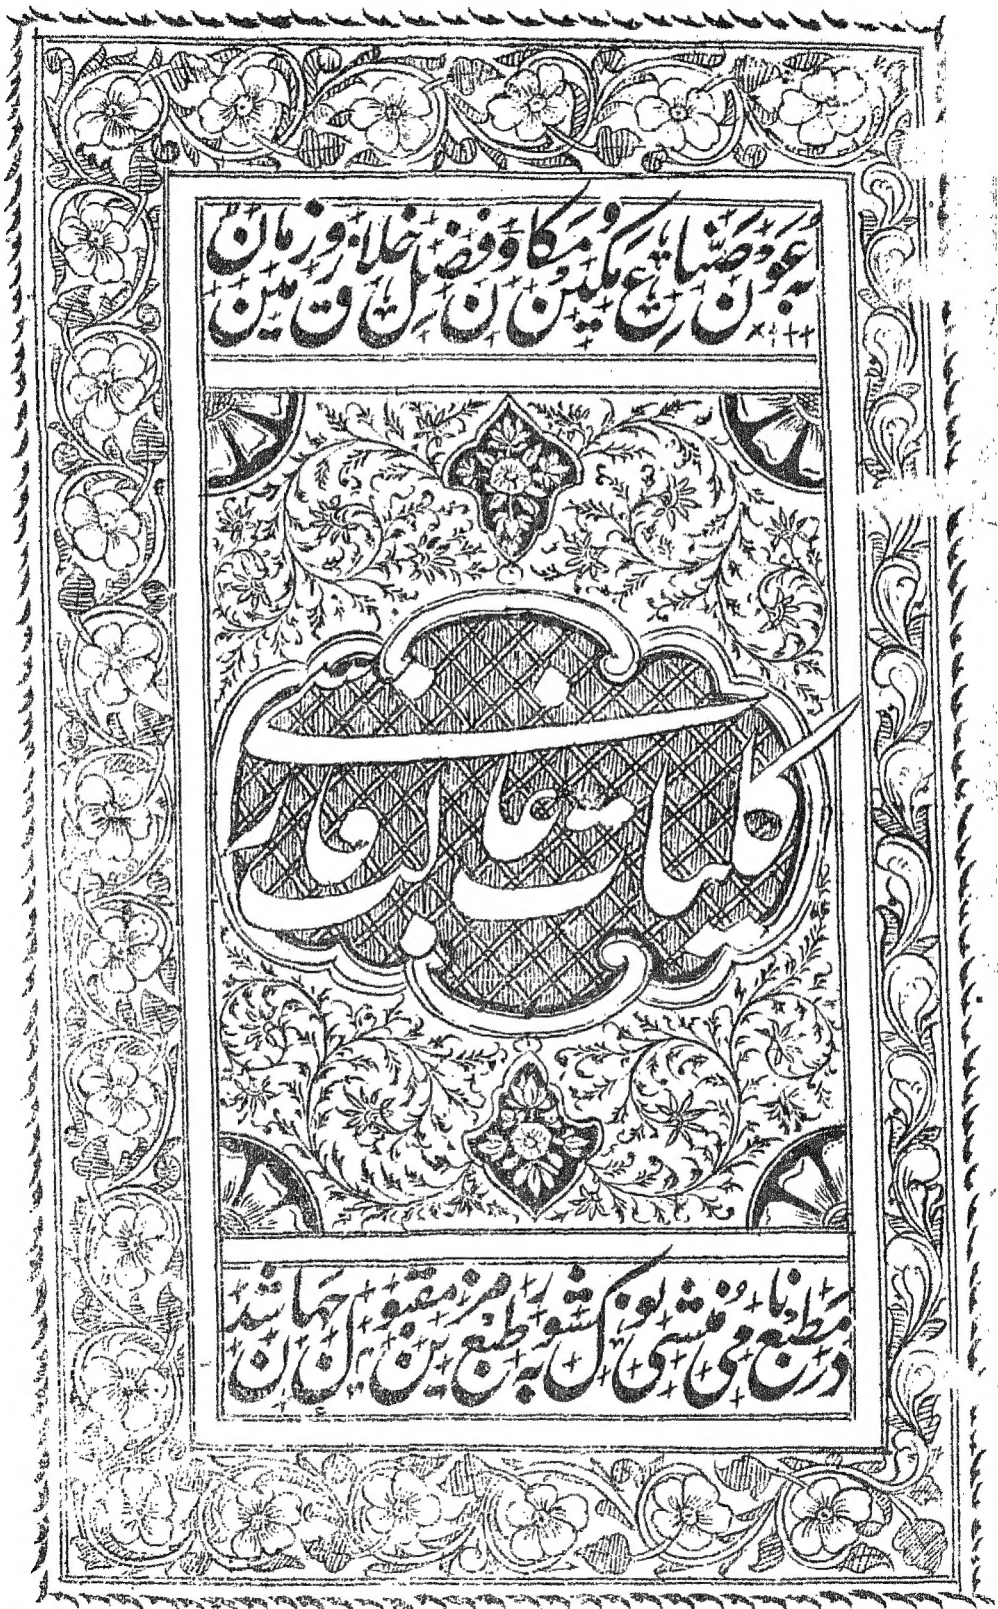 بعون صناع مکین و مکان و فضل خلاق زمین و زمان
کلیات غالب فارسی
در مطبع نامی منشی نول کشور به طبع مزین مقبول جهان شد